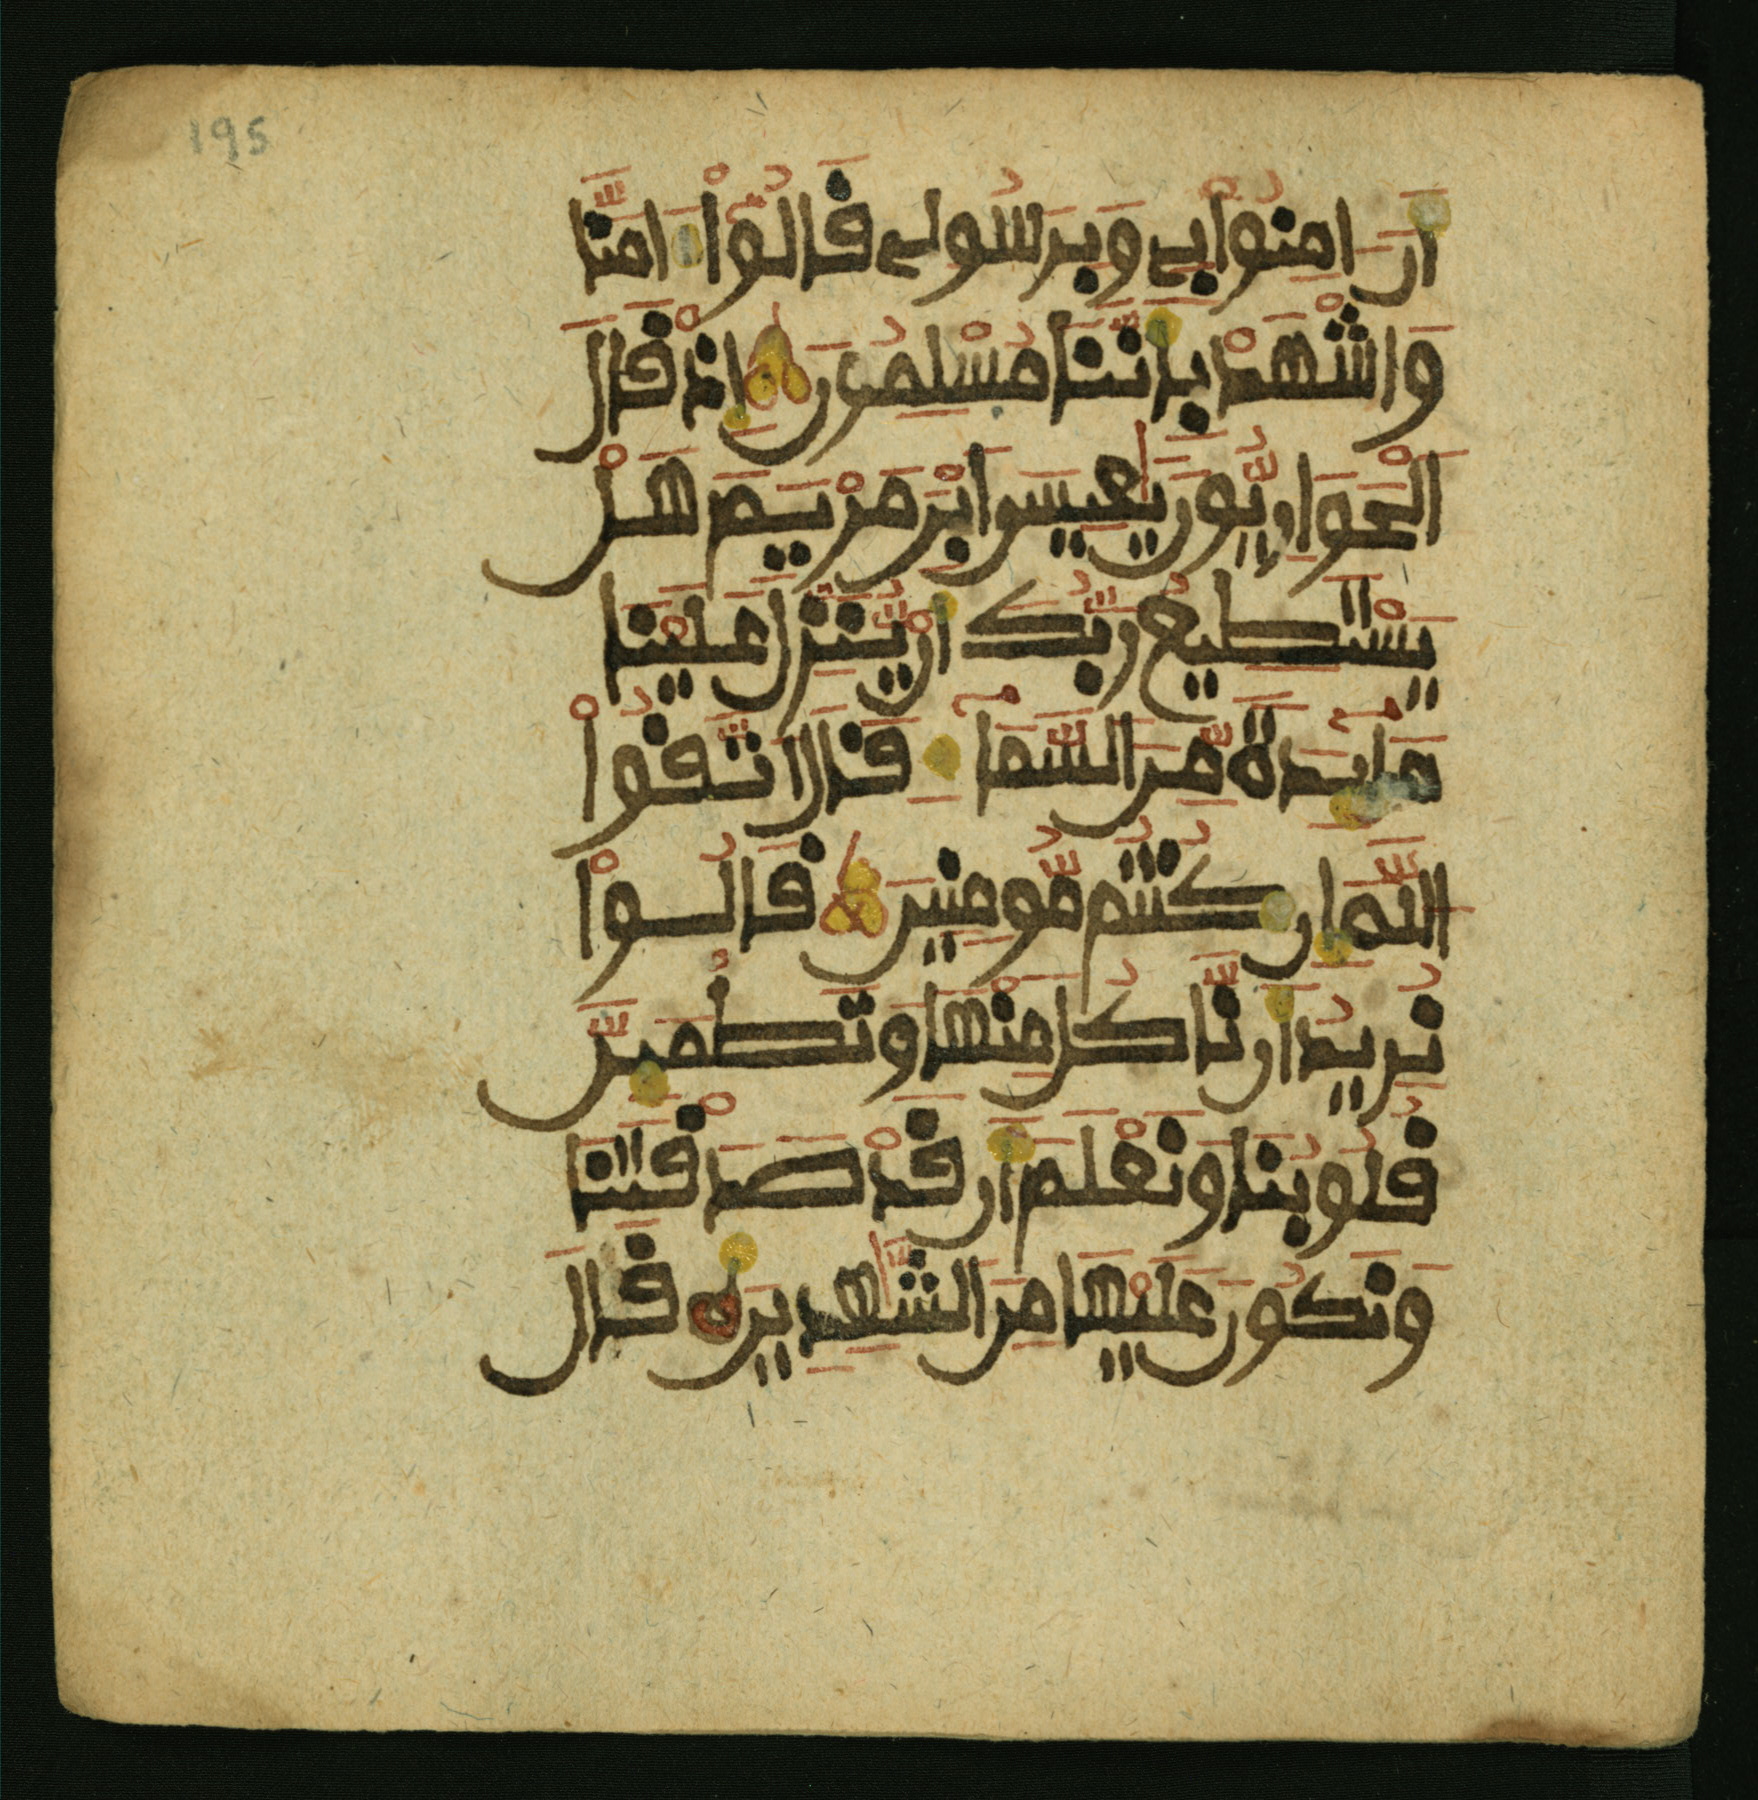 195
اَنَ اٰمِنُواْ بِے وَبِرَسُولِے قَالُوٓاْ ءَامَنَّا
وَاشْهَدْ بِأَنَّنَا مُسْلِمُونَ إِذْ قَالَ
اَلْحَوَارِيُّونَ يَٰعِيسَي اَبْنَ مَرْيَمَ هَلْ
يَسْتَطِيعُ رَبُّكَ أَنْ يُّنَزِّلَ عَلَيْنَا
مَآئِدَةً مِّنَ السَّمَآءِ قَالَ اَتَّقُواْ
اللَّهَ إِن كُنتُم مُّومِنِينَ قَالُواْ
نُرِيدُ أَن نَّاكُلَ مِنْهَا وَتَطْمَئِنَّ
قُلُوبُنَا وَنَعْلَمَ أَن قَدْ صَدَقْتَنَا
وَنَكُونَ عَلَيْهَا مِنَ الشَّٰهِدِينَ قَالَ